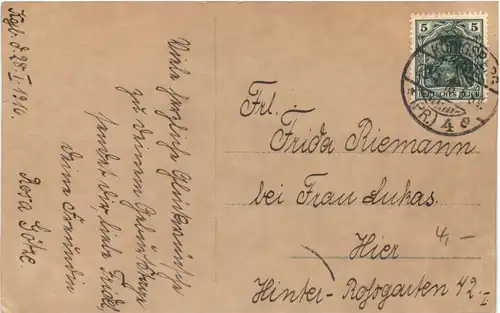 Kgb. d. 28. I. 1916.
Viele herzliche Glückwünsche
zu Deinem Geburtstage
sendet Dir, liebe Friedel,
Deine Freundin
Rosa Götze.
5 5
DEUTSCHES REICH
KÖNIGSB
(PR.) 4 c
Frl.
Frida Riemann
bei Frau Lukas.
Hier
4,-
Hinter-Roßgarten 42 I